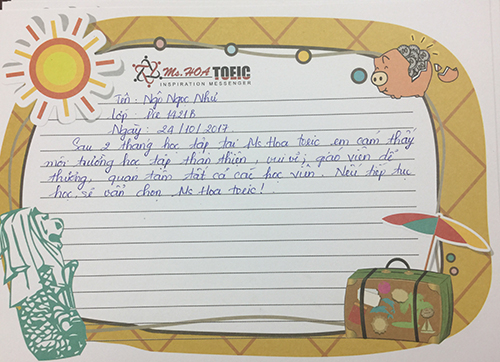 Ms.HOA TOEIC
INSPIRATION MESSENGER
Tên: Ngô Ngọc Như
Lớp Pre 1421B
Ngày: 24/10/2017
Sau 2 tháng học tập tại Ms Hoa toeic em cảm thấy
môi trường học tập thân thiện, vui vẻ, giáo viên dễ
thương, quan tâm tất cả các học viên. Nếu tiếp tục
học sẽ vẫn chọn Ms Hoa toeic!